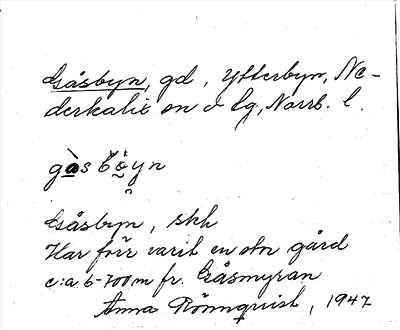 Gåsbyn, gd, Ytterbyn, Ne-
derkalix sn o lg, Norrb. l.
gàsbyn
Gåsbyn, skh
Har förr varit en stor gård
c:a 6-700 m fr. Gåsmyran
Anna Rönnqvist, 1947